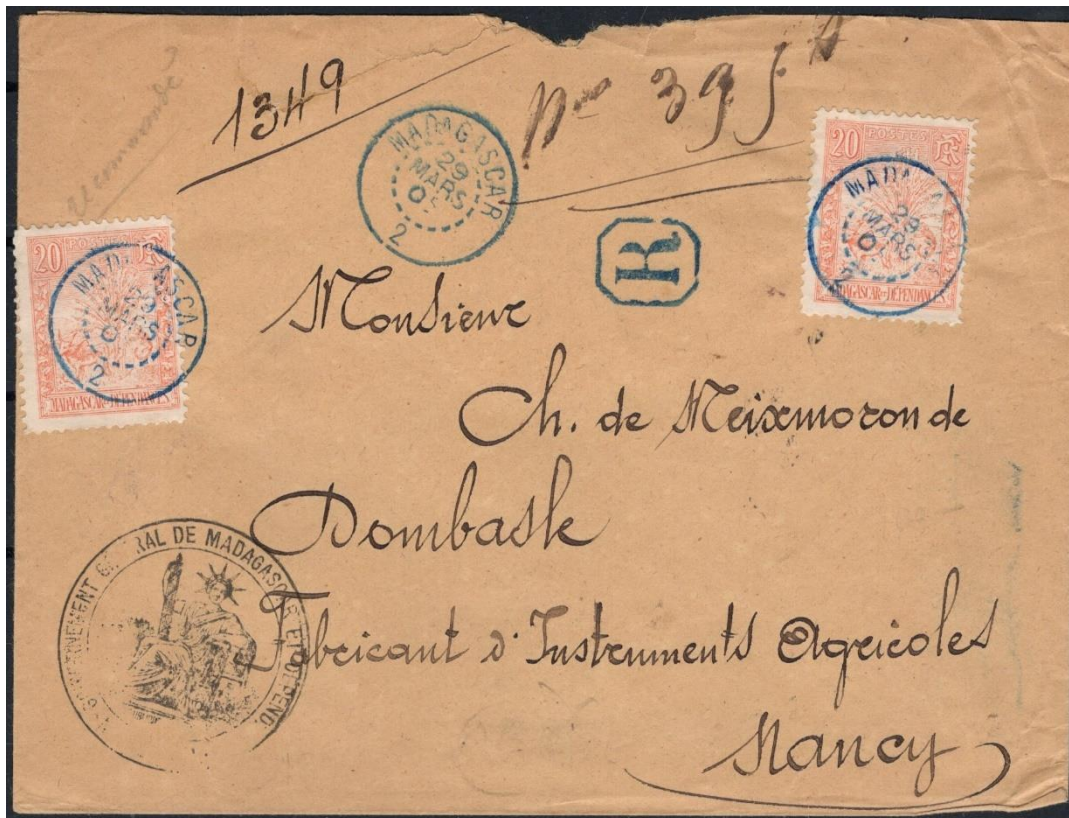 Recommandé
1349
Nro 395
MADAGASCAR
29
MARS
2
R
20 POSTES RF
MADAGASCAR ET DÉPENDANCES
MADAGASCAR
29
MARS
2
20 POSTES RF
MADAGASCAR ET DÉPENDANCES
MADAGASCAR
29
MARS
2
Monsieur
Ch. de Meixmoron de
Dombasle
Fabricant d'Instruments Agricoles
Nancy
GOUVERNEMENT GÉNÉRAL DE MADAGASCAR ET DÉPEND.